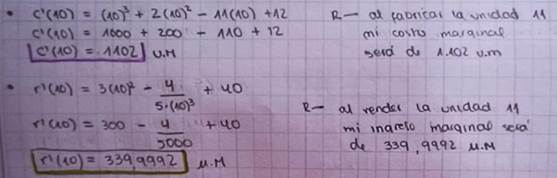 • c'(10) = (10)³ + 2(10)² - 11(10) + 12
c'(10) = 1000 + 200 - 110 + 12
c'(10) = 1102 U.M
R— al fabricar la unidad 11
mi costo marginal
será de 1.102 u.m
• r'(10) = 3(10)² - 4/5·(10)³ + 40
r'(10) = 300 - 4/5000 + 40
r'(10) = 339,9992 μ.M
R— al vender la unidad 11
mi ingreso marginal será
de 339,9992 μ.M